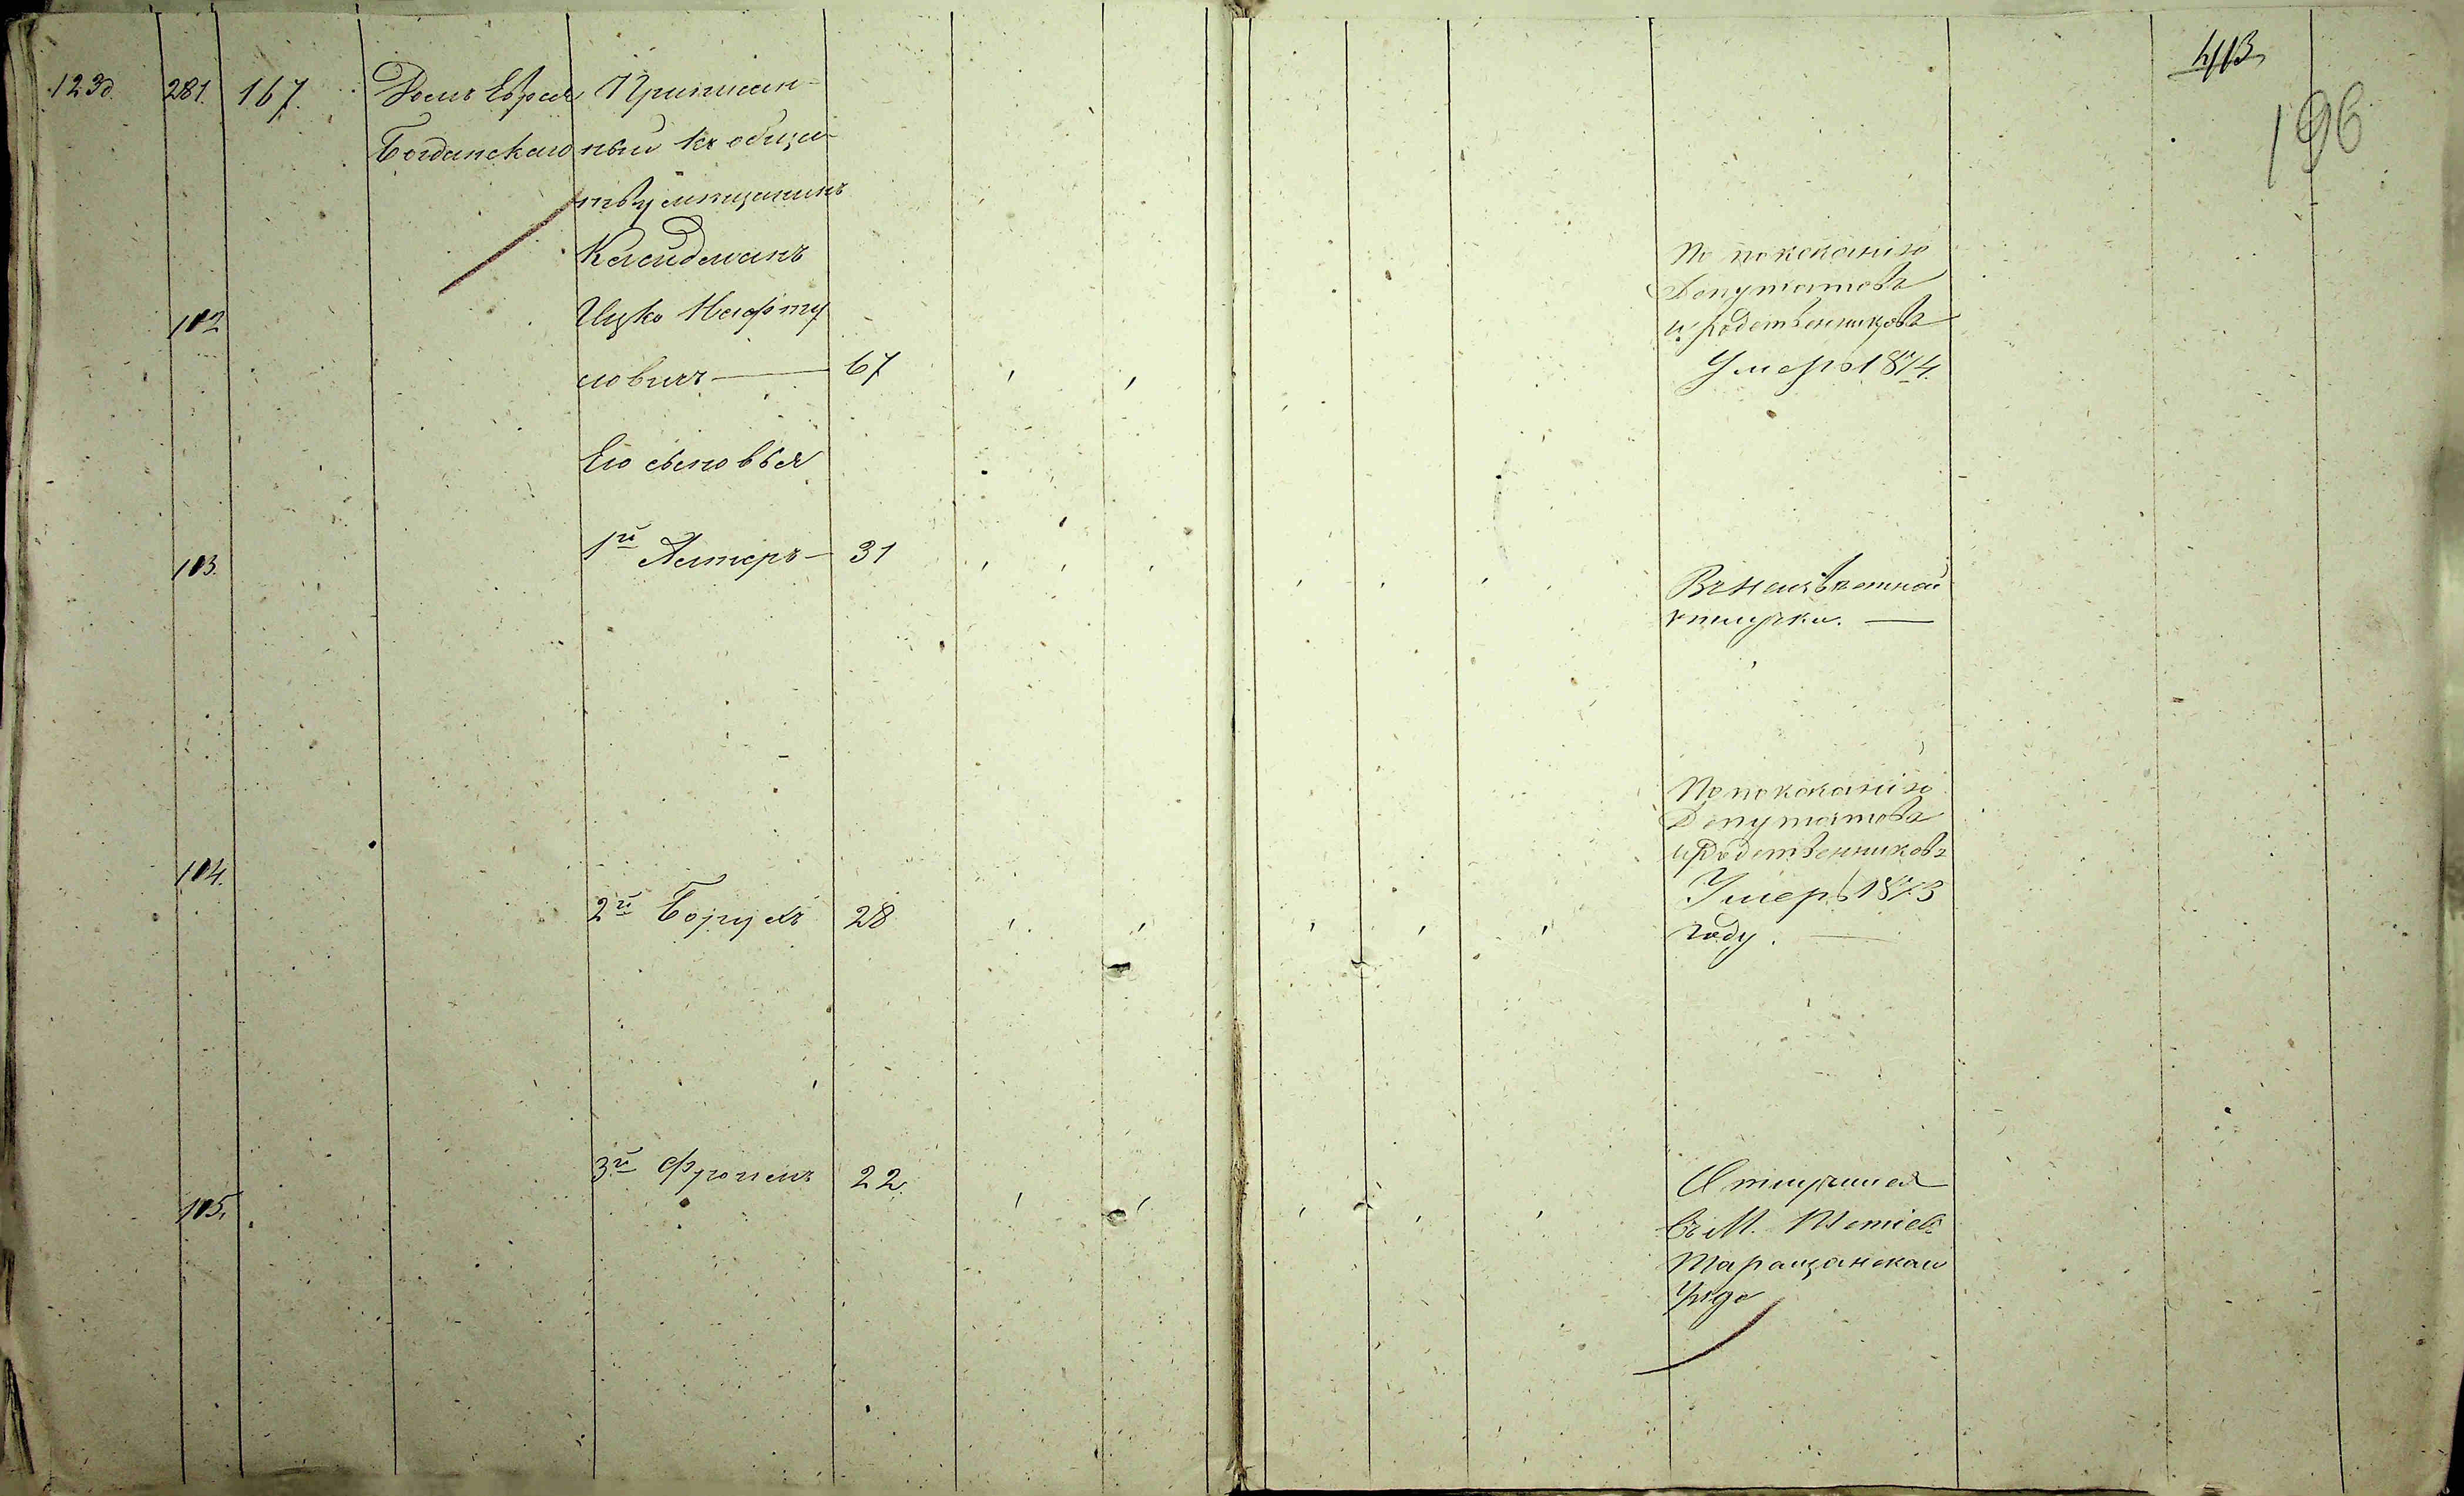 123d. 281. 167. Домъ Еврея Приписан-
Богданскаго ный къ обще-
тву мещанинъ
Клейдманъ
102 Ицко Нафту
ловичъ — 67
Его сыновья
103. 1й Лейзеръ — 31
104. 2й Борухъ 28
105. 3й 22.
413
196
По показанію
Депутатовъ
и родственниковъ
Умеръ 1874.
Въ неизвестной
отлучки. —
По показанію
Депутатовъ
и родственниковъ
Умеръ 1873
году. —
Отлучился
въ М.
Таращанскаго
Уезда